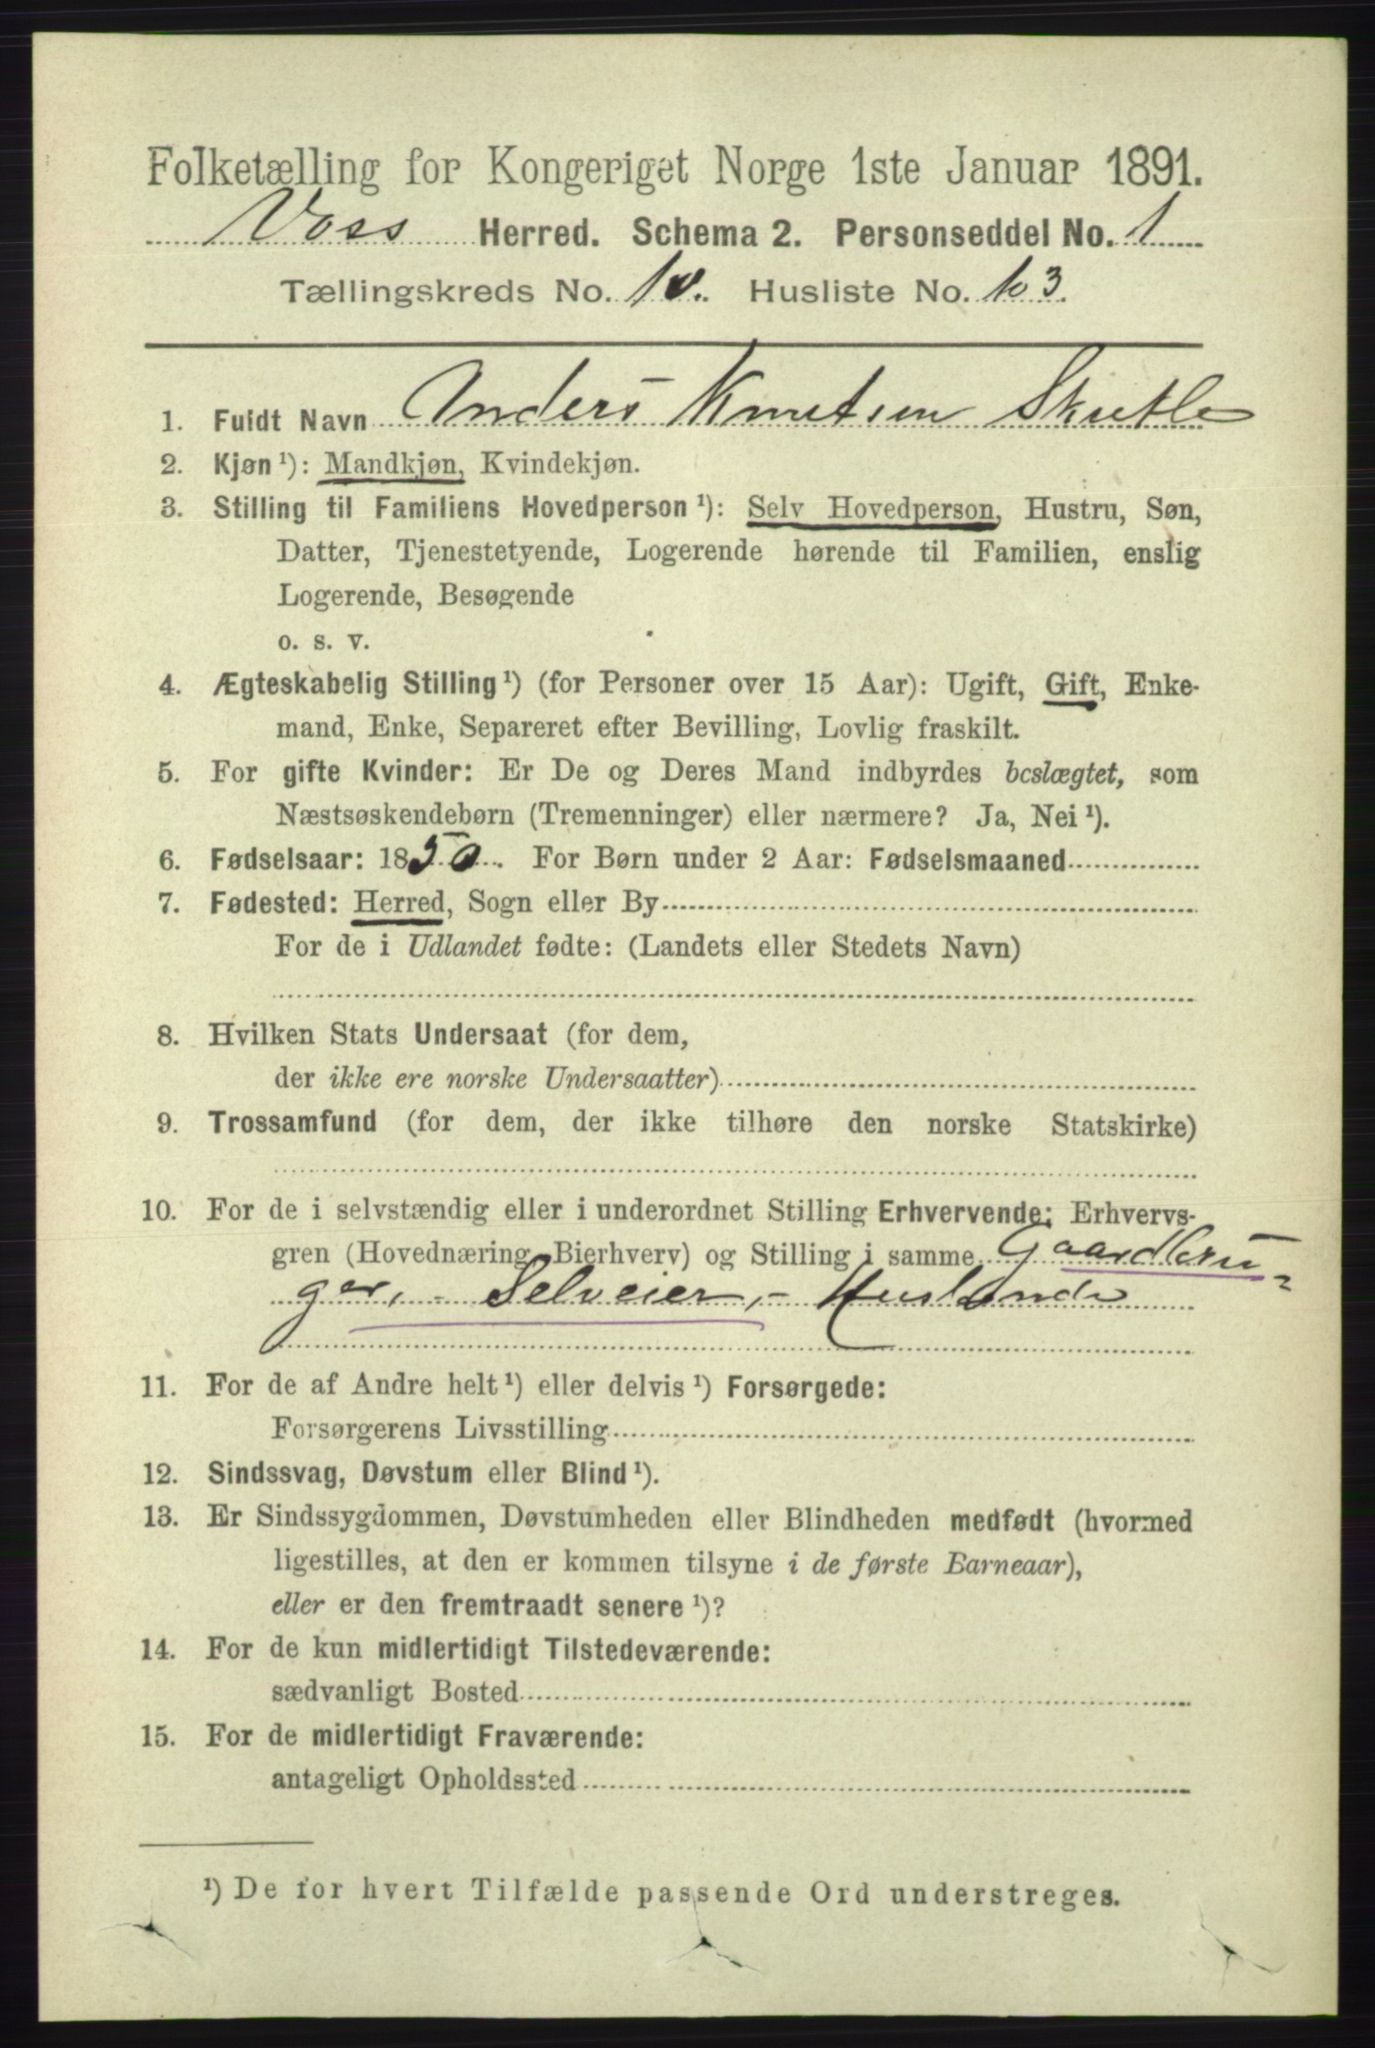 Folketælling for Kongeriget Norge 1ste Januar 1891.
Voss Herred. Schema 2. Personseddel No. 1
Tællingskreds No. 10. Husliste No. 103.
1. Fuldt Navn Anders Knutsen Skutle
2. Kjøn ¹): Mandkjøn, Kvindekjøn.
3. Stilling til Familiens Hovedperson ¹): Selv Hovedperson, Hustru, Søn,
Datter, Tjenestetyende, Logerende hørende til Familien, enslig
Logerende, Besøgende
o. s. v.
4. Ægteskabelig Stilling ¹) (for Personer over 15 Aar): Ugift, Gift, Enke-
mand, Enke, Separeret efter Bevilling, Lovlig fraskilt.
5. For gifte Kvinder: Er De og Deres Mand indbyrdes beslægtet, som
Næstsøskendebørn (Tremenninger) eller nærmere? Ja, Nei ¹).
6. Fødselsaar: 1850. For Børn under 2 Aar: Fødselsmaaned
7. Fødested: Herred, Sogn eller By
For de i Udlandet fødte: (Landets eller Stedets Navn)
8. Hvilken Stats Undersaat (for dem,
der ikke ere norske Undersaatter)
9. Trossamfund (for dem, der ikke tilhøre den norske Statskirke)
10. For de i selvstændig eller i underordnet Stilling Erhvervende: Erhvervs-
gren (Hovednæring, Bierhverv) og Stilling i samme. Gaardbru-
ger, - Selveier, - Husbonde
11. For de af Andre helt ¹) eller delvis ¹) Forsørgede:
Forsørgerens Livsstilling
12. Sindssvag, Døvstum eller Blind ¹).
13. Er Sindssygdommen, Døvstumheden eller Blindheden medfødt (hvormed
ligestilles, at den er kommen tilsyne i de første Barneaar),
eller er den fremtraadt senere ¹)?
14. For de kun midlertidigt Tilstedeværende:
sædvanligt Bosted
15. For de midlertidigt Fraværende:
antageligt Opholdssted
¹) De for hvert Tilfælde passende Ord understreges.